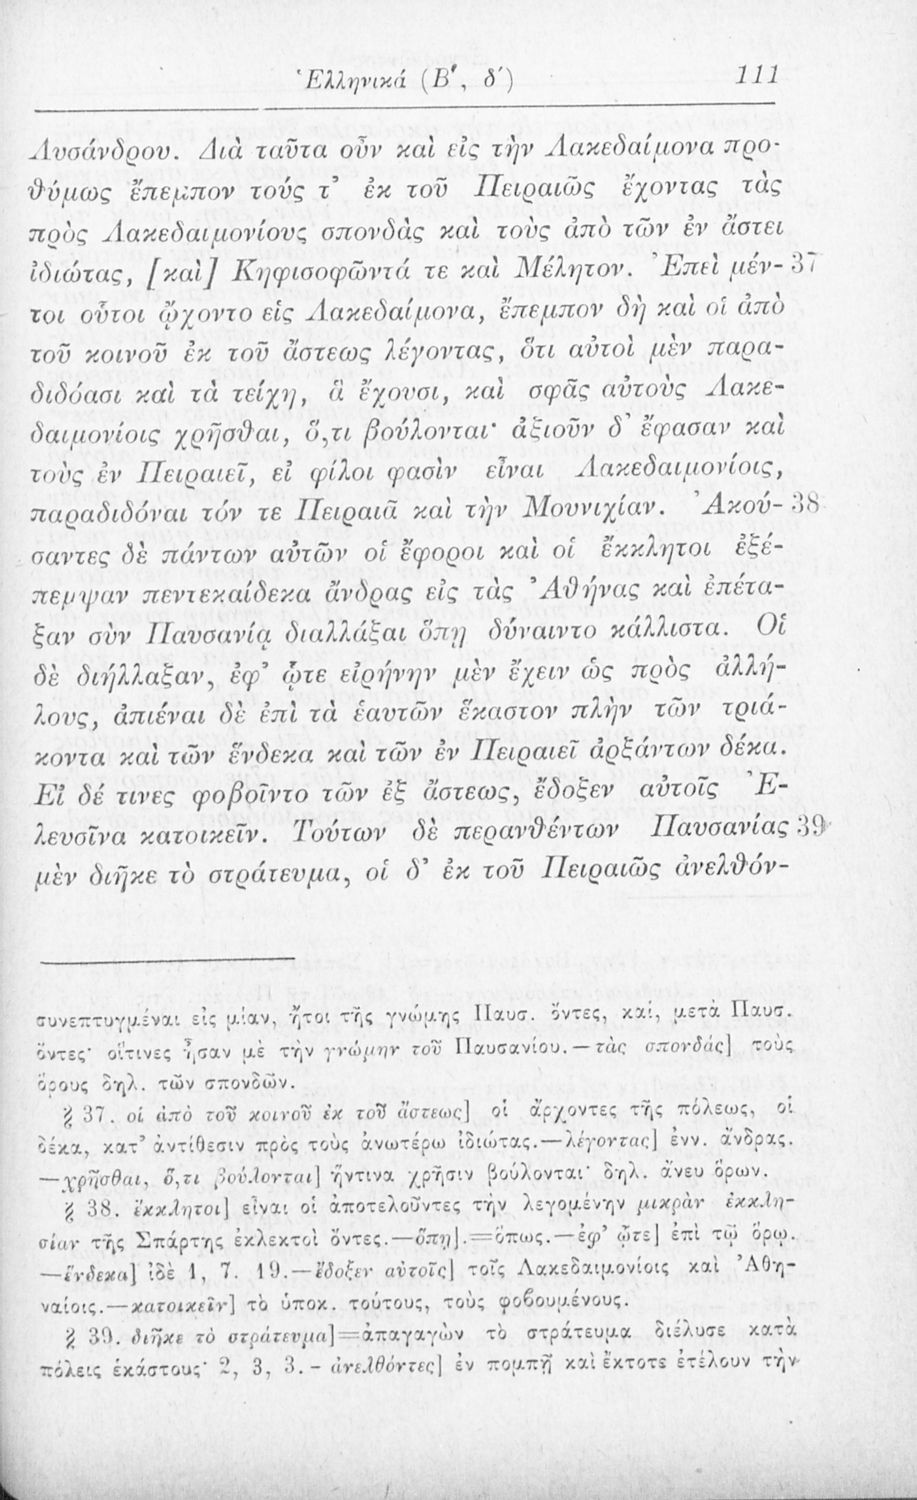 Ἑλληνικά (Β΄, δ΄) 111
Λυσάνδρου. Διὰ ταῦτα οὖν καὶ εἰς τὴν Λακεδαίμονα προ-
θύμως ἔπεμπον τούς τ᾽ ἐκ τοῦ Πειραιῶς ἔχοντας τὰς
πρὸς Λακεδαιμονίους σπονδὰς καὶ τοὺς ἀπὸ τῶν ἐν ἄστει
ἰδιώτας, [καὶ] Κηφισοφῶντά τε καὶ Μέλητον. Ἐπεὶ μέν- 37
τοι οὗτοι ᾤχοντο εἰς Λακεδαίμονα, ἔπεμπον δὴ καὶ οἱ ἀπὸ
τοῦ κοινοῦ ἐκ τοῦ ἄστεως λέγοντας, ὅτι αὐτοὶ μὲν παρα-
διδόασι καὶ τὰ τείχη, ἃ ἔχουσι, καὶ σφᾶς αὐτοὺς Λακε-
δαιμονίοις χρῆσθαι, ὅ,τι βούλονται· ἀξιοῦν δ᾽ ἔφασαν καὶ
τοὺς ἐν Πειραιεῖ, εἰ φίλοι φασὶν εἶναι Λακεδαιμονίοις,
παραδιδόναι τόν τε Πειραιᾶ καὶ τὴν Μουνιχίαν. Ἀκού- 38
σαντες δὲ πάντων αὐτῶν οἱ ἔφοροι καὶ οἱ ἔκκλητοι ἐξέ-
πεμψαν πεντεκαίδεκα ἄνδρας εἰς τὰς Ἀθήνας καὶ ἐπέτα-
ξαν σὺν Παυσανίᾳ διαλλάξαι ὅπῃ δύναιντο κάλλιστα. Οἱ
δὲ διήλλαξαν, ἐφ᾽ ᾧτε εἰρήνην μὲν ἔχειν ὡς πρὸς ἀλλή-
λους, ἀπιέναι δὲ ἐπὶ τὰ ἑαυτῶν ἕκαστον πλὴν τῶν τριά-
κοντα καὶ τῶν ἕνδεκα καὶ τῶν ἐν Πειραιεῖ ἀρξάντων δέκα.
Εἰ δέ τινες φοβοῖντο τῶν ἐξ ἄστεως, ἔδοξεν αὐτοῖς Ἐ-
λευσῖνα κατοικεῖν. Τούτων δὲ περανθέντων Παυσανίας 39
μὲν διῆκε τὸ στράτευμα, οἱ δ᾽ ἐκ τοῦ Πειραιῶς ἀνελθόν-
συνεπτυγμέναι εἰς μίαν, ἤτοι τῆς γνώμης Παυσ. ὄντες, καί, μετὰ Παυσ.
ὄντες· οἵτινες ἦσαν μὲ τὴν γνώμην τοῦ Παυσανίου.—τὰς σπονδάς] τοὺς
ὅρους δηλ. τῶν σπονδῶν.
§ 37. οἱ ἀπὸ τοῦ κοινοῦ ἐκ τοῦ ἄστεως] οἱ ἄρχοντες τῆς πόλεως, οἱ
δέκα, κατ᾽ ἀντίθεσιν πρὸς τοὺς ἀνωτέρω ἰδιώτας.—λέγοντας] ἐνν. ἄνδρας.
—χρῆσθαι, ὅ,τι βούλονται] ἥντινα χρῆσιν βούλονται· δηλ. ἄνευ ὅρων.
§ 38. ἔκκλητοι] εἶναι οἱ ἀποτελοῦντες τὴν λεγομένην μικρὰν ἐκκλη-
σίαν τῆς Σπάρτης ἐκλεκτοὶ ὄντες.—ὅπῃ].=ὅπως.—ἐφ᾽ ᾧτε] ἐπὶ τῷ ὅρῳ.
—ἕνδεκα] ἰδὲ 1, 7. 19.—ἔδοξεν αὐτοῖς] τοῖς Λακεδαιμονίοις καὶ Ἀθη-
ναίοις.—κατοικεῖν] τὸ ὑποκ. τούτους, τοὺς φοβουμένους.
§ 39. διῆκε τὸ στράτευμα]=ἀπαγαγὼν τὸ στράτευμα διέλυσε κατὰ
πόλεις ἑκάστους· 2, 3, 3.- ἀνελθόντες] ἐν πομπῇ καὶ ἔκτοτε ἐτέλουν τὴν